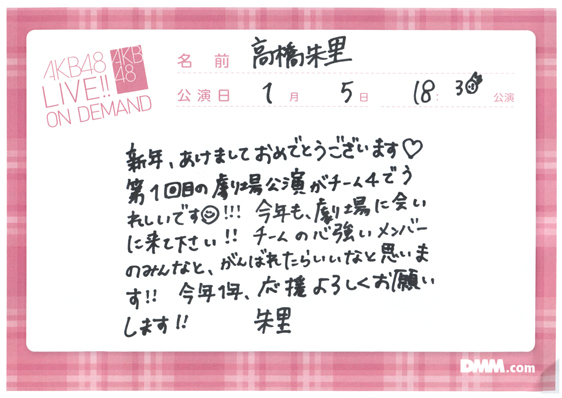 AKB48
LIVE!!
ON DEMAND
AKB
48
名前 高橋朱里
公演日 1月 5日 18:30 公演
新年、あけましておめでとうございます♡
第1回目の劇場公演がチーム4でう
れしいです☺!!! 今年も、劇場に会い
に来て下さい!! チームの心強いメンバー
のみんなと、がんばれたらいいなと思いま
す!! 今年1年、応援よろしくお願い
します!! 朱里
DMM.com